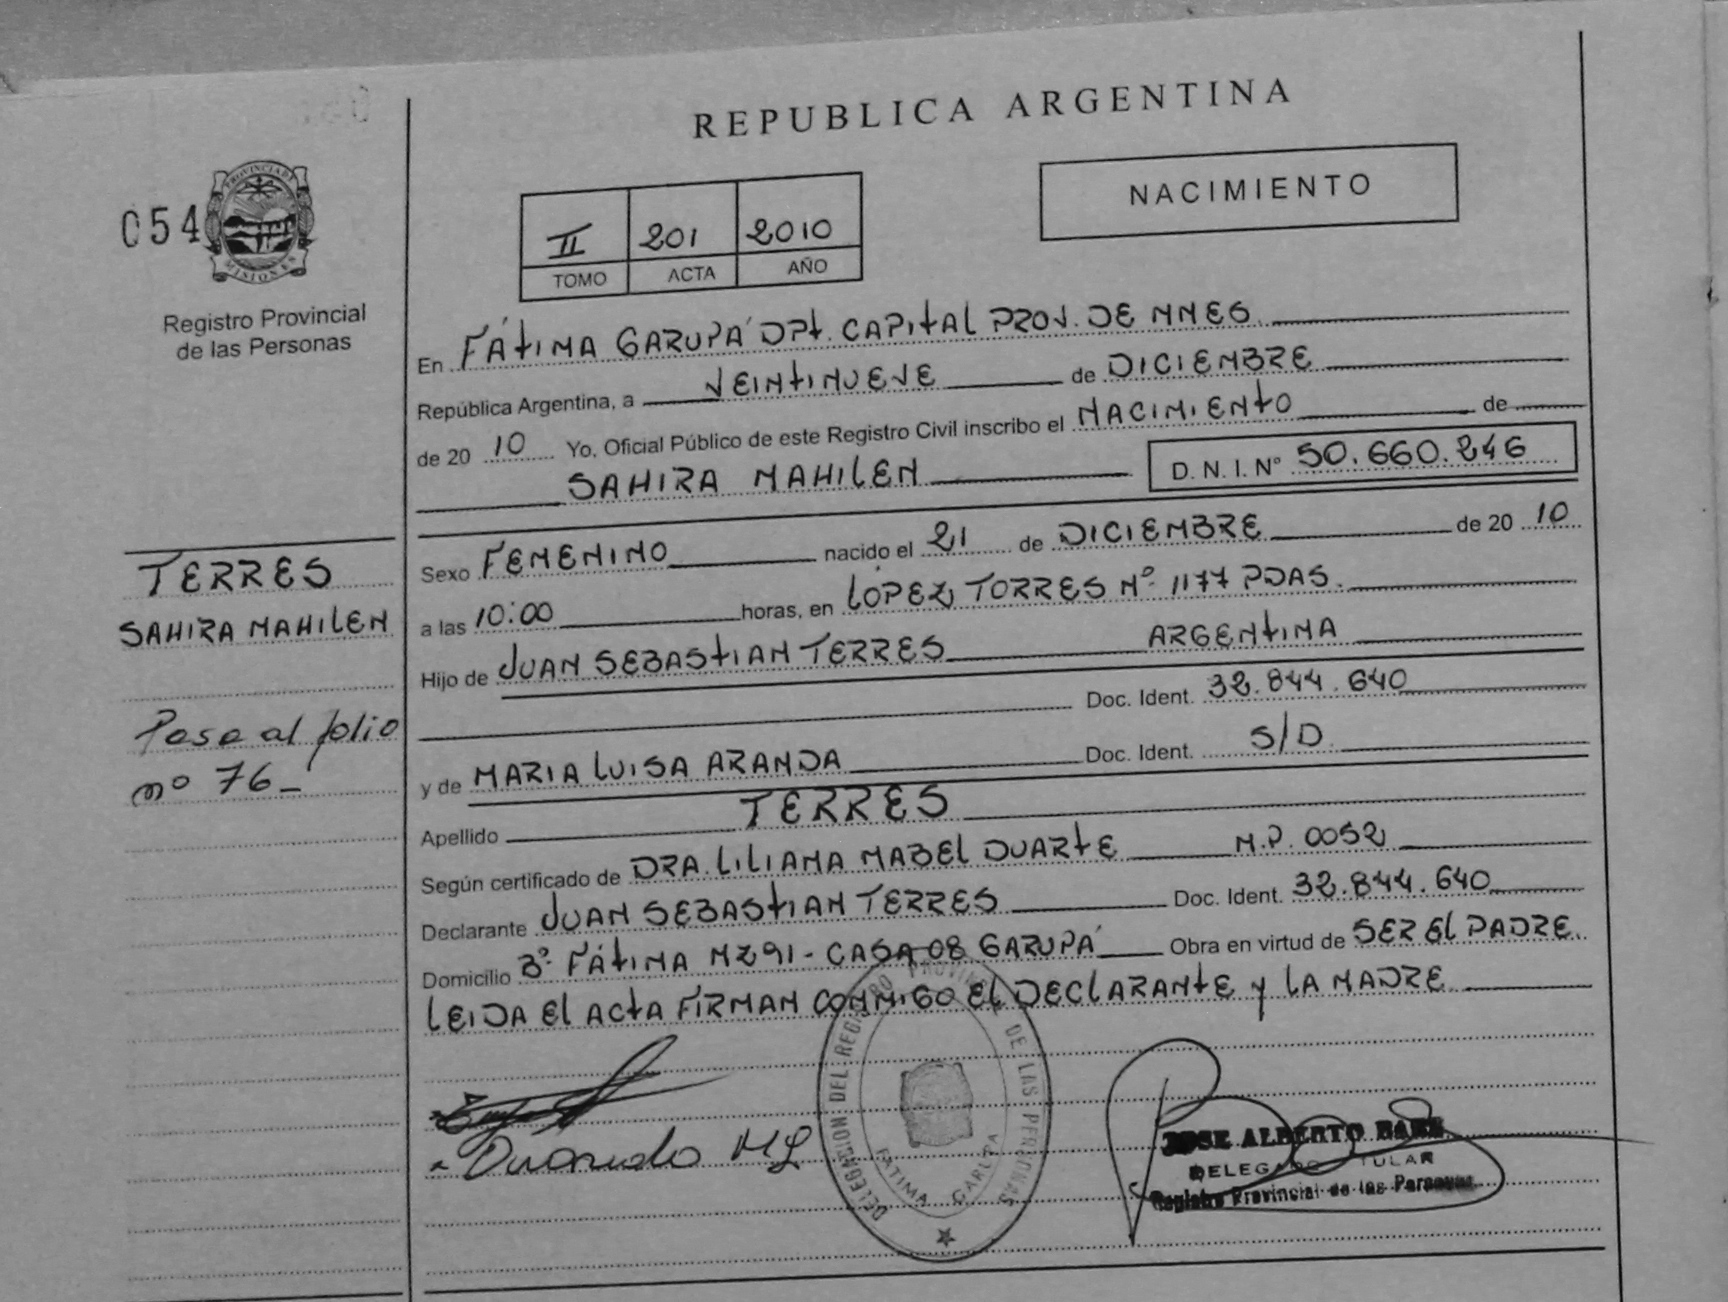 REPUBLICA ARGENTINA
NACIMIENTO
054
PROVINCIA DE
MISIONES
Registro Provincial
de las Personas
II 201 2010
TOMO ACTA AÑO
En FÁTIMA GARUPÁ DPT. CAPITAL PROV. DE MNES
República Argentina, a VEINTINUEVE de DICIEMBRE
de 20 10 Yo, Oficial Público de este Registro Civil inscribo el NACIMIENTO de
SAHIRA MAHILEN D.N.I.N° 50.660.246
Sexo FEMENINO nacido el 21 de DICIEMBRE de 20 10
a las 10:00 horas, en LOPEZ TORRES Nº 1177 PDAS.
Hijo de JUAN SEBASTIAN TERRES ARGENTINA
Doc. Ident. 32.844.640
y de MARIA LUISA ARANDA Doc. Ident. S/D
Apellido TERRES
Según certificado de DRA. LILIANA MABEL DUARTE M.P. 0052
Declarante JUAN SEBASTIAN TERRES Doc. Ident. 32.844.640
Domicilio Bº FÁTIMA MZ 91 - CASA 08 GARUPÁ Obra en virtud de SER EL PADRE.
LEIDA EL ACTA FIRMAN CONMIGO EL DECLARANTE y LA MADRE
TERRES
SAHIRA MAHILEN
Pasa al folio
nº 76-
DELEGACION DEL REGISTRO PROVINCIAL DE LAS PERSONAS
FATIMA GARUPA
JOSE ALBERTO BAEZ
DELEGADO TITULAR
Registro Provincial de las Personas